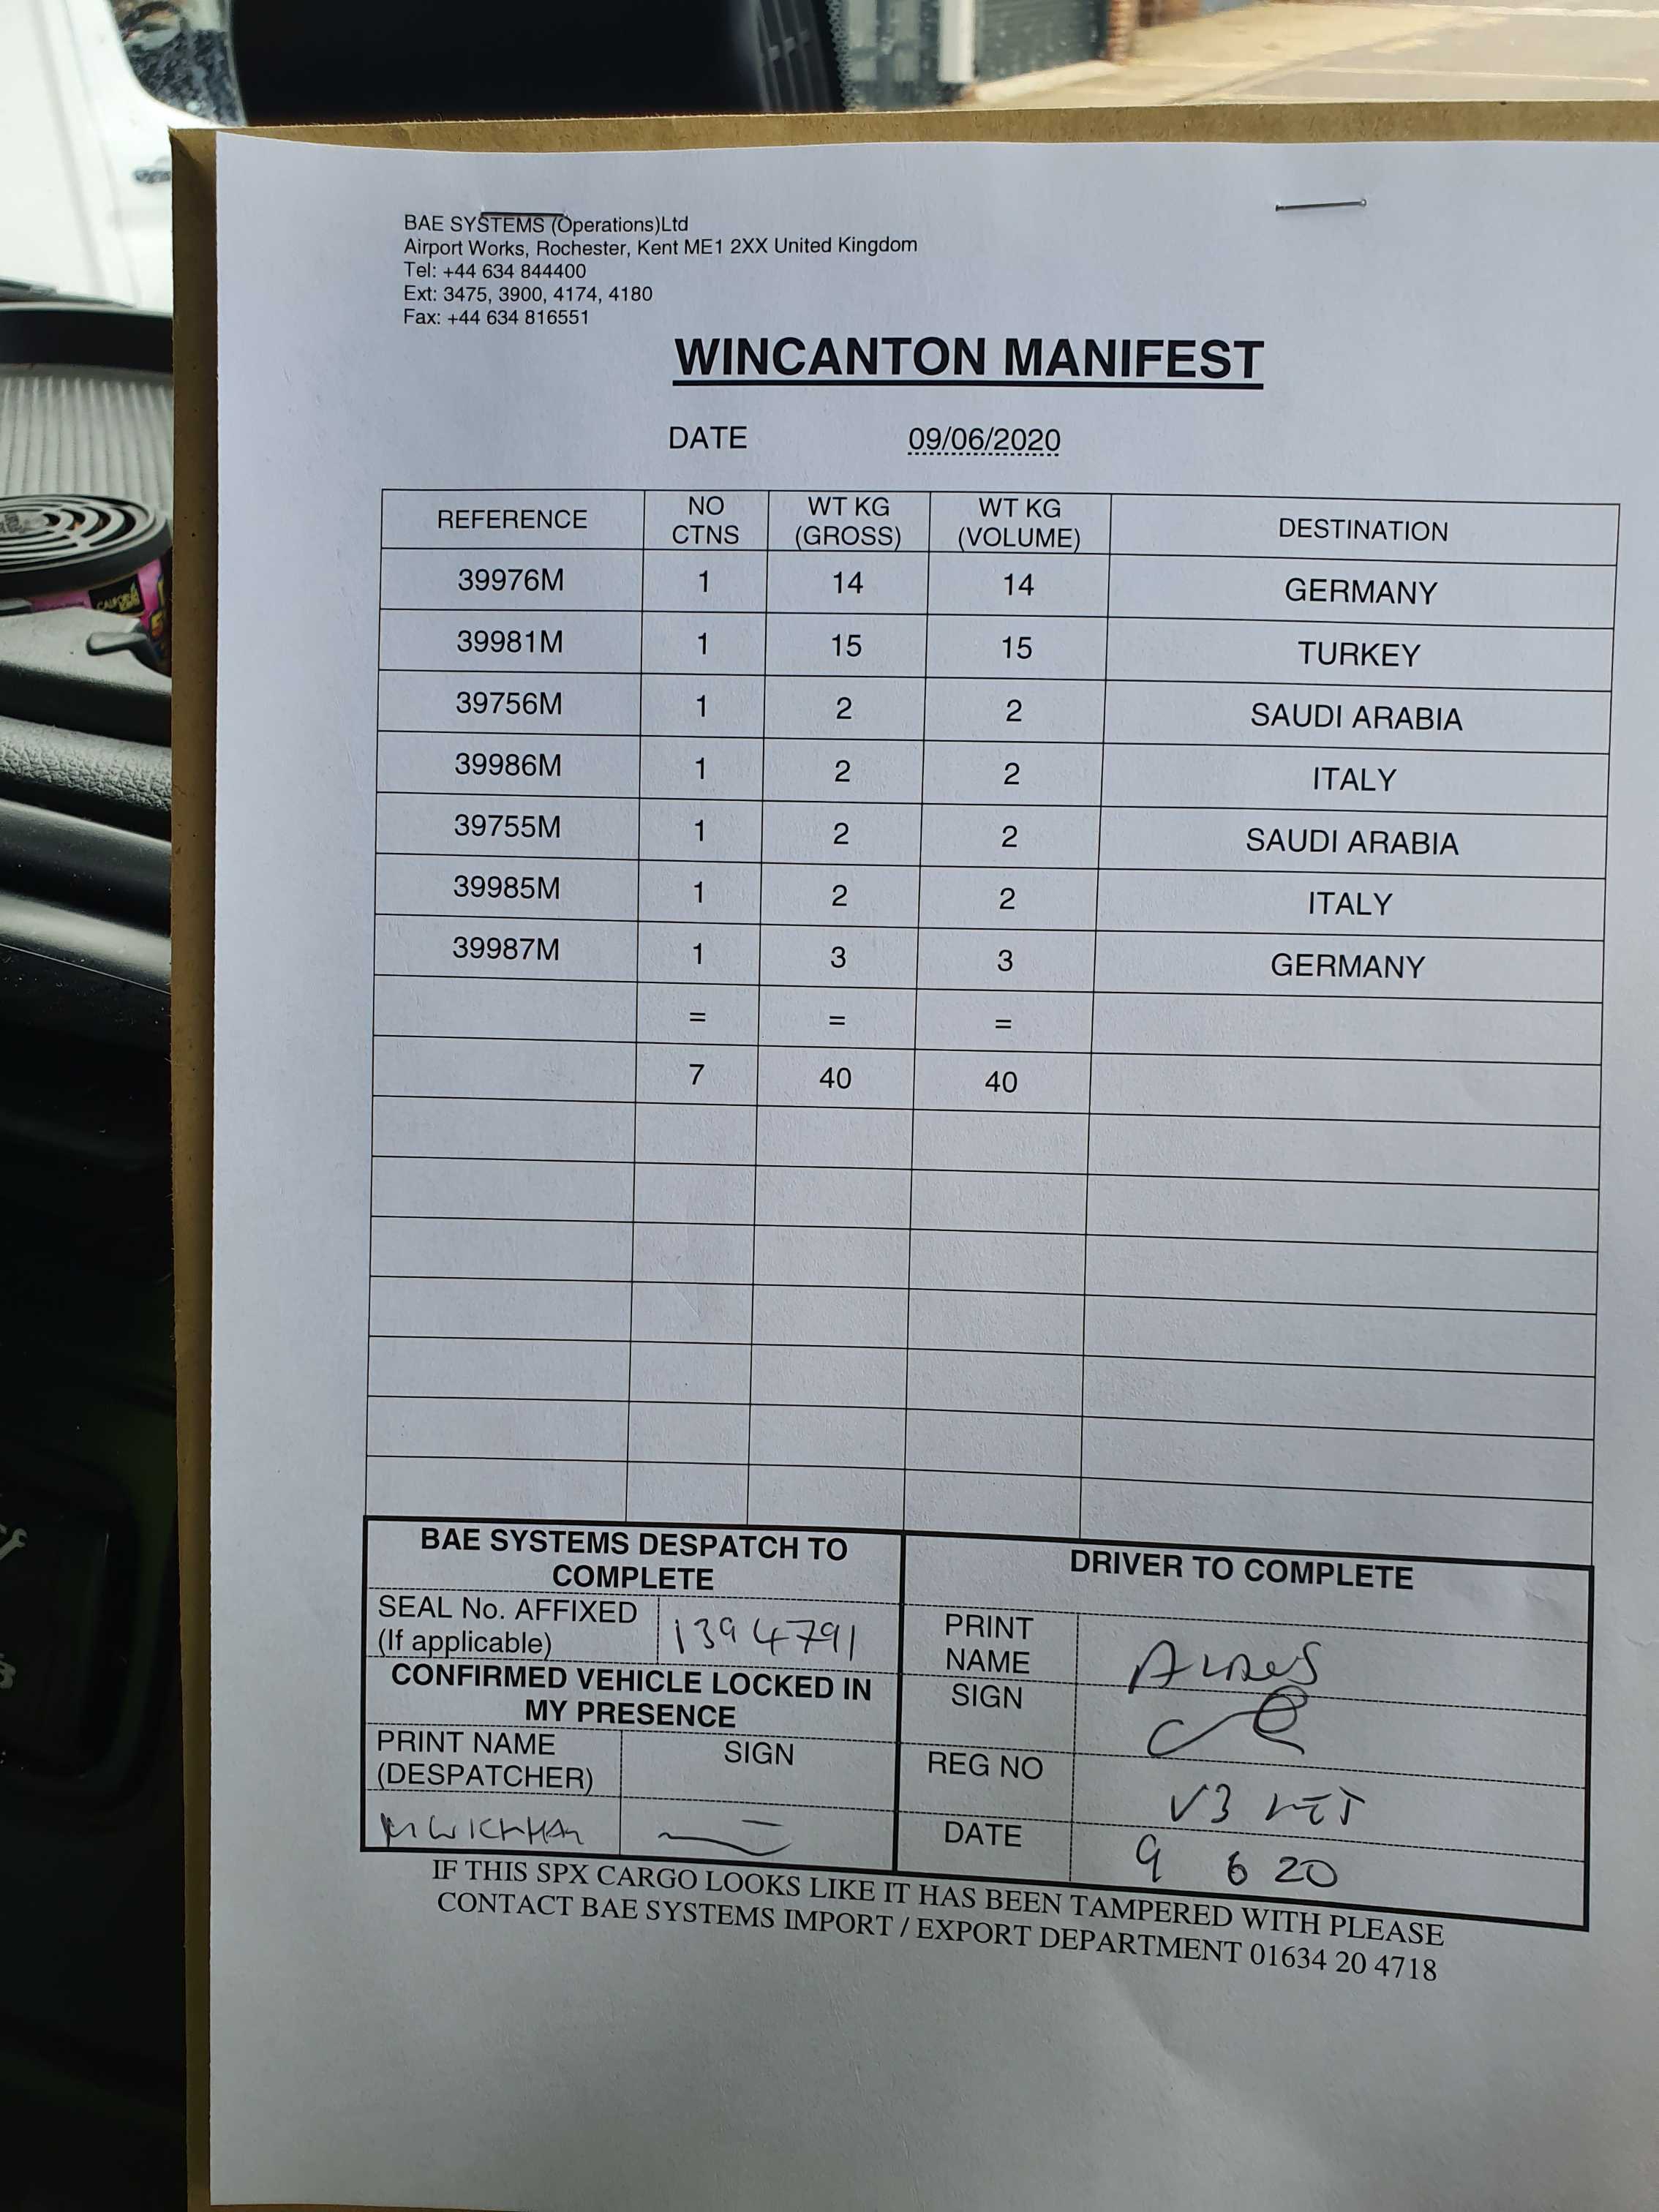 BAE SYSTEMS (Operations)Ltd
Airport Works, Rochester, Kent ME1 2XX United Kingdom
Tel: +44 634 844400
Ext: 3475, 3900, 4174, 4180
Fax: +44 634 816551
WINCANTON MANIFEST
DATE 09/06/2020
REFERENCE NO CTNS WT KG (GROSS) WT KG (VOLUME) DESTINATION
39976M 1 14 14 GERMANY
39981M 1 15 15 TURKEY
39756M 1 2 2 SAUDI ARABIA
39986M 1 2 2 ITALY
39755M 1 2 2 SAUDI ARABIA
39985M 1 2 2 ITALY
39987M 1 3 3 GERMANY
= = =
7 40 40
BAE SYSTEMS DESPATCH TO
COMPLETE
SEAL No. AFFIXED
(If applicable)
1394791
CONFIRMED VEHICLE LOCKED IN
MY PRESENCE
PRINT NAME
(DESPATCHER)
SIGN
DRIVER TO COMPLETE
PRINT
NAME
SIGN
REG NO
V3
DATE
9 6 20
IF THIS SPX CARGO LOOKS LIKE IT HAS BEEN TAMPERED WITH PLEASE
CONTACT BAE SYSTEMS IMPORT / EXPORT DEPARTMENT 01634 20 4718